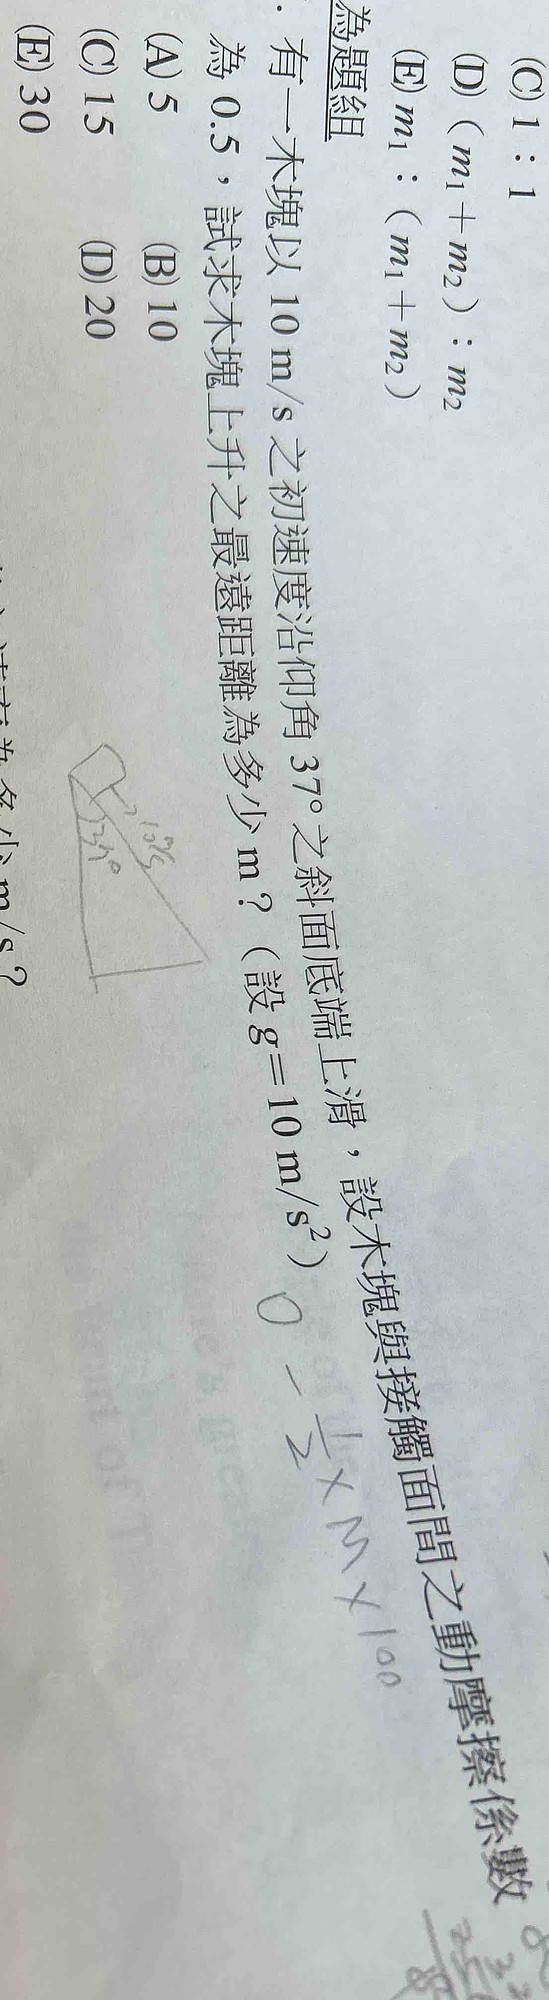 (C) 1：1
(D)（m₁＋m₂）：m₂
(E) m₁：（m₁＋m₂）
為題組
. 有一木塊以 10 m/s 之初速度沿仰角 37°之斜面底端上滑，設木塊與接觸面間之動摩擦係數
為 0.5，試求木塊上升之最遠距離為多少 m？（設 g＝10 m/s²）
0 - 1/2 × M × 100
(A) 5 (B) 10
(C) 15 (D) 20
(E) 30
10m/s
37°
為多少 m/s？